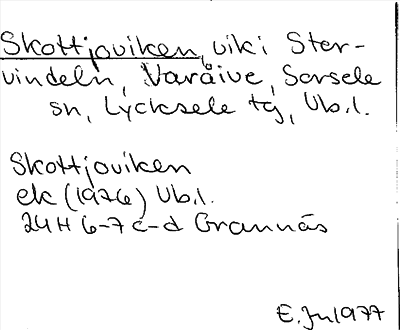 Skottjoviken, vik i Stor-
vindeln, Varåive, Sorsele
sn, Lycksele tg, Vb.l.
Skottjoviken
ek (1976) Vb.l.
24H 6-7 c-d Grannäs
E.Ju 1977